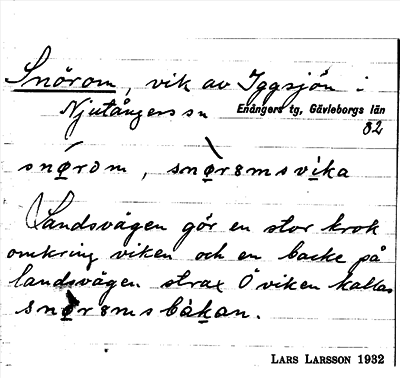 Snörom, vik av Iggsjön i
Njutångers sn Enångers tg, Gävleborgs län
82
snø̱rom, snø̱rɘmsvi̱ka
Landsvägen gör en stor krok
omkring viken och en backe på
landsvägen strax Ö viken kallas
snø̱rɘmsbàḵan.
LARS LARSSON 1932